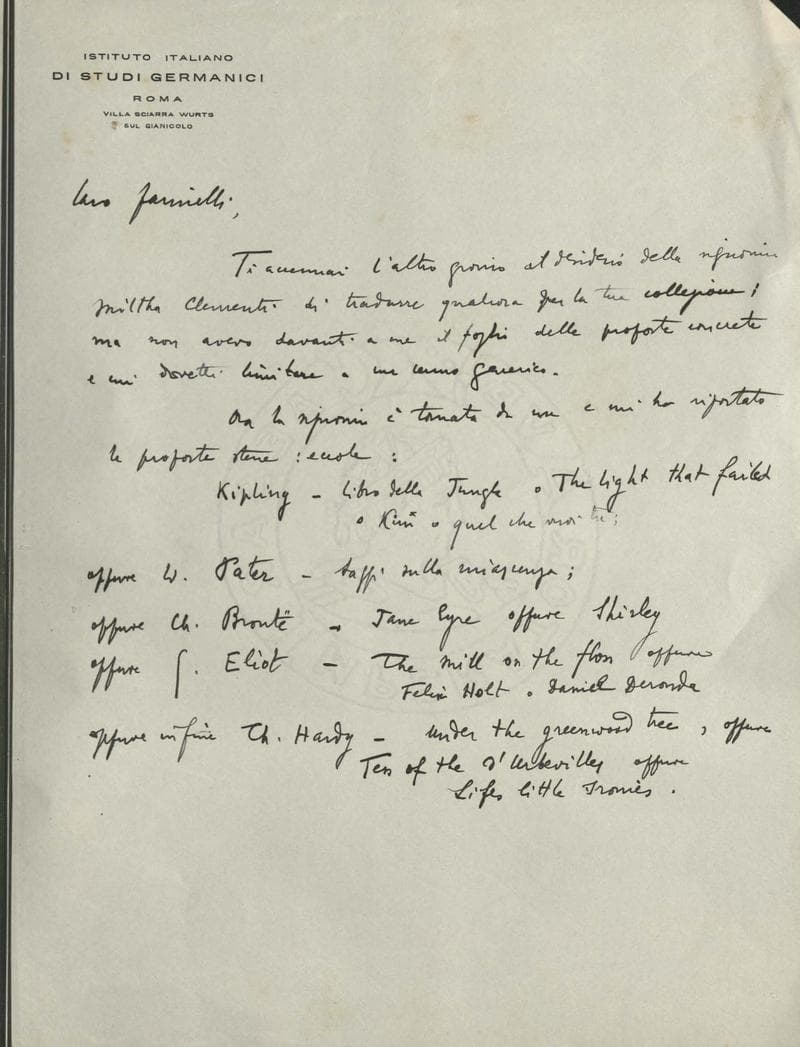 ISTITUTO ITALIANO
DI STUDI GERMANICI
ROMA
VILLA SCIARRA WURTS
SUL GIANICOLO
Caro
Ti accennai l'altro giorno al desiderio della signorina
Clementi di tradurre qualcosa per la tua collezione;
ma non avevo davanti a me il foglio delle proposte concrete
e mi dovetti limitare a un cenno generico.
Ora la signorina è tornata da me e mi ha riportato
le proposte stesse: eccole:
Kipling – Libro della Jungla o The light that failed
o Kim o quel che vuoi tu;
oppure W. Pater – Saggi sulla rinascenza;
oppure Ch. Brontë – Jane Eyre oppure Shirley
oppure G. Eliot – The mill on the floss oppure
Felix Holt o Daniel Deronda
oppure infine Th. Hardy – Under the greenwood tree, oppure
Tess of the d'Urbervilles oppure
Lifes little Ironies.